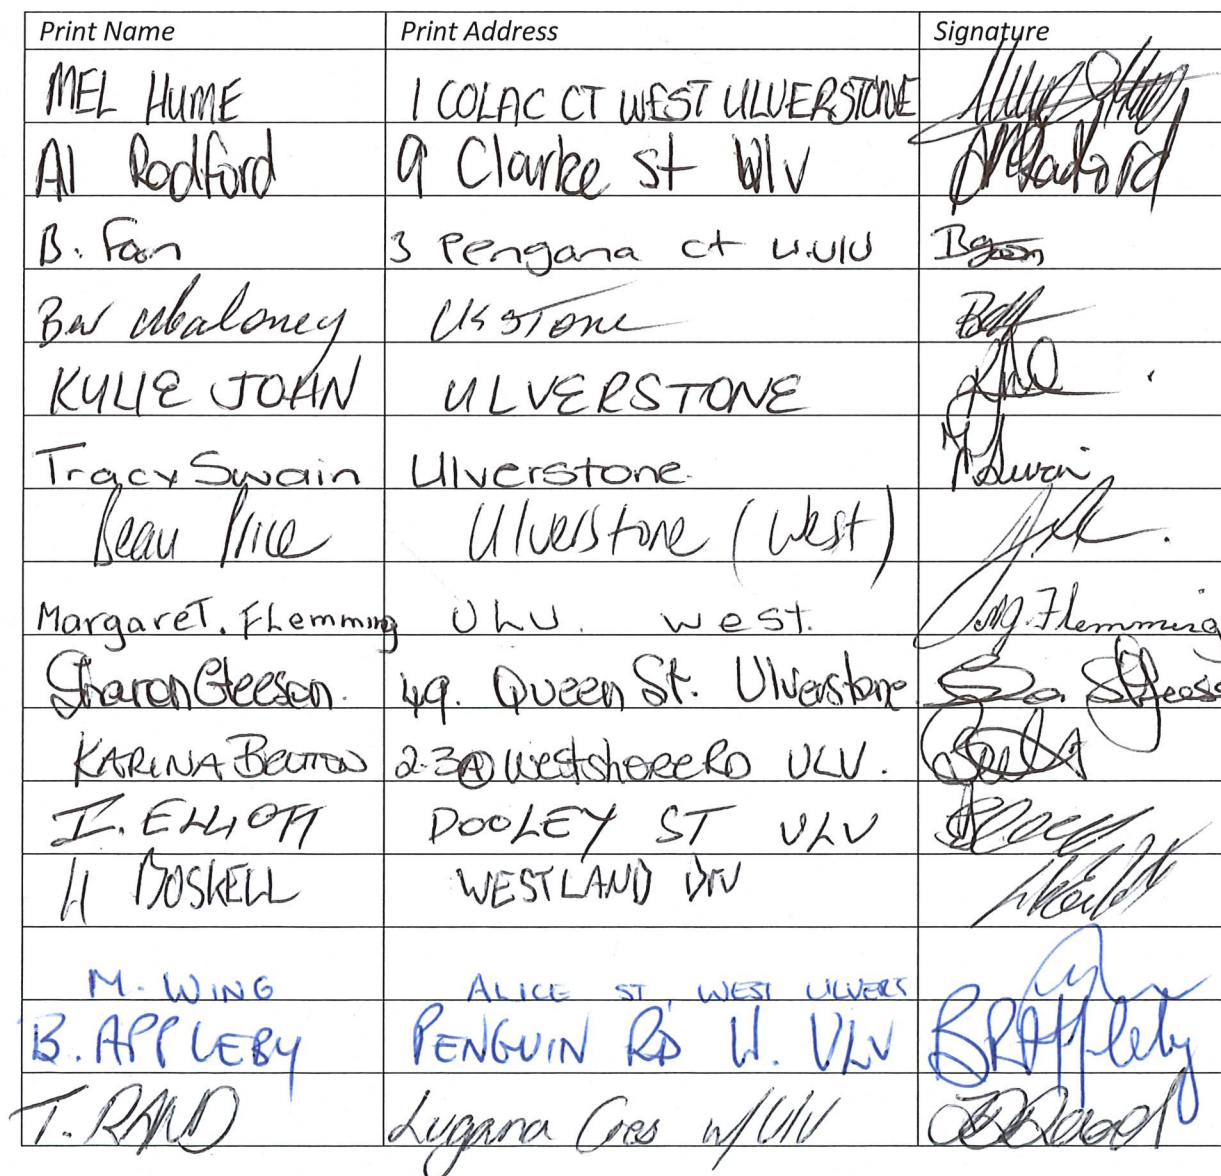 Print Name Print Address Signature
MEL HUME 1 COLAC CT WEST ULVERSTONE
Al Radford 9 Clarke st Wlv A Radford
B. Fan 3 Pengana ct W.Ulv
BW Maloney U'STONE
KYLIE JOHN ULVERSTONE
Tracy Swain Ulverstone. T Swain
Beau Price Ulverstone (West)
MargareT. FLemming ULV. west. M. Flemming
Sharon Gleeson. 49. Queen St. Ulverstone
KARINA BELTON 2-3A Westshore RD ULV.
I. ELLIOTT DOOLEY ST ULV
BOSKELL WESTLAND DIV
M. WING ALICE ST, WEST ULVERS
B. APPLEBY PENGUIN RD W. ULV BR Appleby
T. RAND Lugana Cres W/Ulv